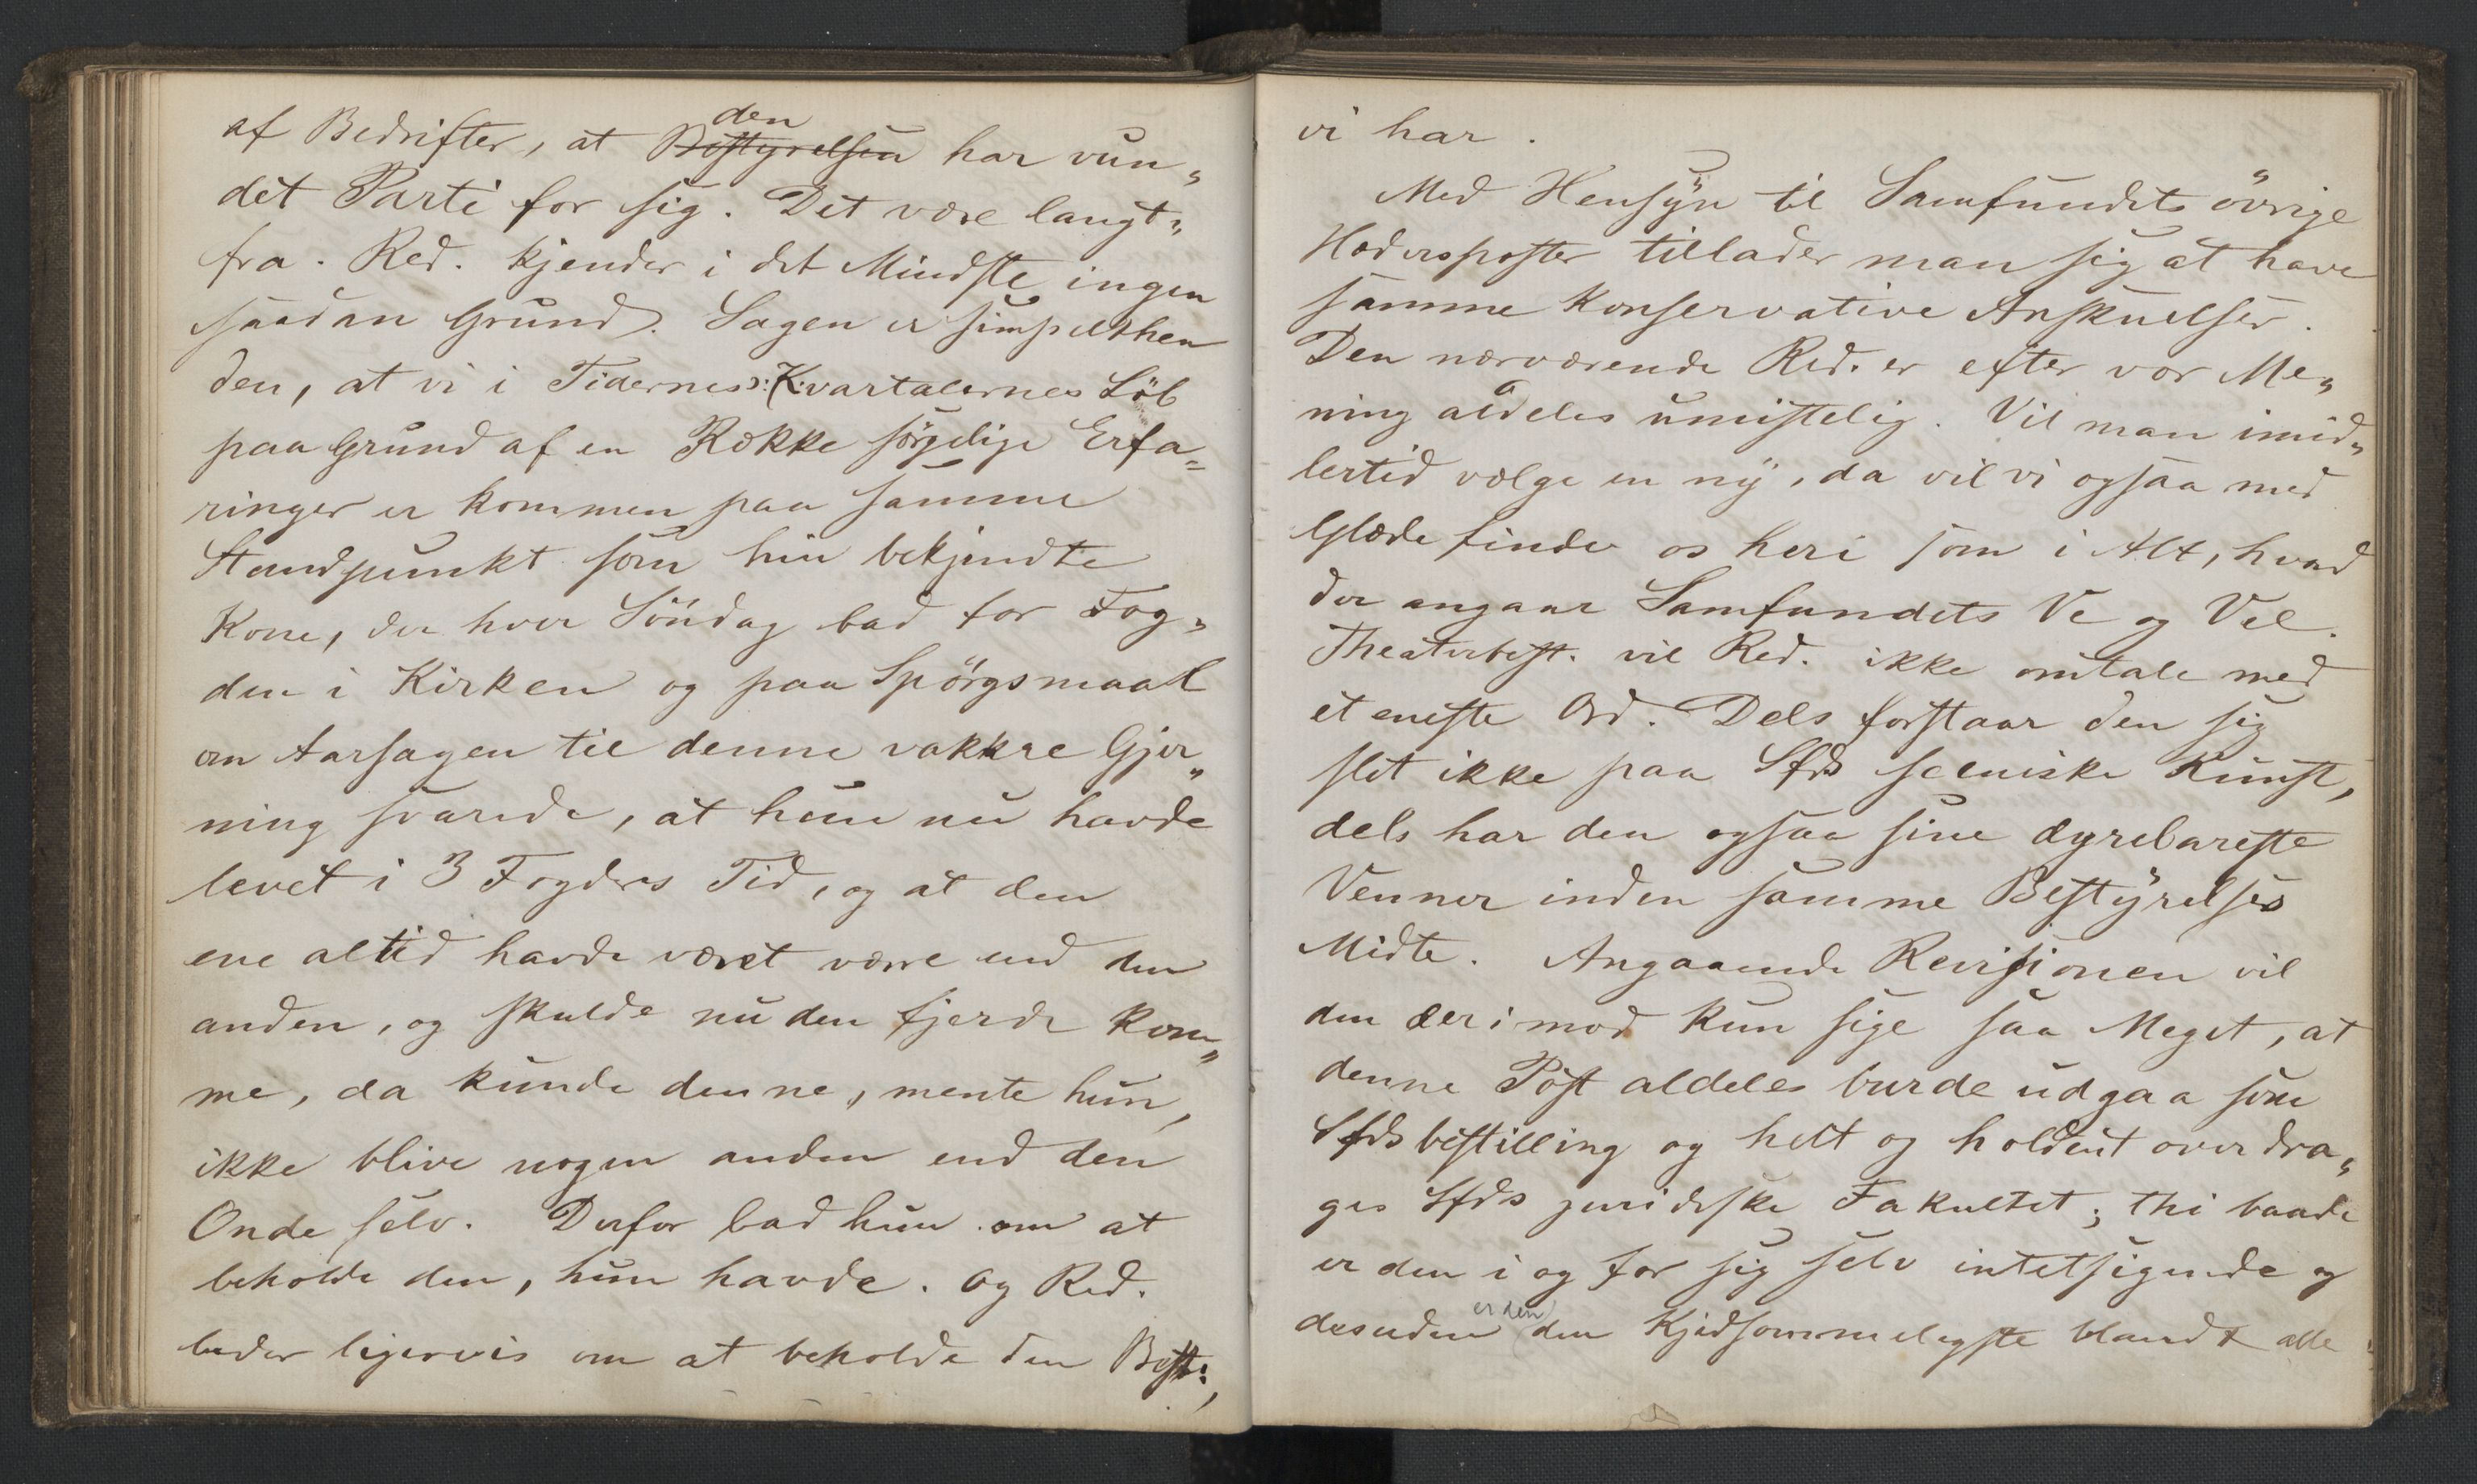 af Bedrifter, at den Bestyrelsen har vun„
det Parti for sig. Det være langt„
fra. Red. kjender i det Mindste ingen
saadan Grund. Sagen er simpelthen
den, at vi i Tidernes ɔ: Kvartalernes Löb
paa Grund af en Række sørgelige Erfa„
ringer er kommen paa samme
Standpunkt som hin bekjendte
Kone, der hver Söndag bad for Fog„
den i Kirken og paa Spörgsmaal
om Aarsagen til denne vakkre Gjer„
ning svarede, at hun nu havde
levet i 3 Fogders Tid, og at den
ene altid havde været værre end den
anden, og skulde nu den fjerde kom„
me, da kunde denne, mente hun,
ikke blive nogen anden end den
Onde selv. Derfor bad hun om at
beholde den, hun havde. Og Red.
beder ligervis om at beholde den Best.,
vi har.
Med Hensyn til Samfundets övrige
Hædersposter tillader man sig at have
samme konservative Anskuelser.
Den nærværende Red. er efter vor Me„
ning aldeles umistelig. Vil man imid„
lertid vælge en ny, da vil vi ogsaa med
Glæde finde os heri som i Alt, hvad
der angaar Samfundets Ve og Vel.
Theaterbest. vil Red. ikke omtale med
et eneste Ord. Dels forstaar den sig
slet ikke paa Sfds sceniske Kunst,
dels har den ogsaa sine dyrebareste
Venner inden samme Bestyrelses
Midte. Angaaende Revisionen vil
den derimod kun sige saa Meget, at
denne Post aldeles burde udgaa som
Sfdsbestilling og helt og holdent overdra„
ges Sfds juridiske Fakultet; thi baade
er den i og for sig selv intetsigende og
desuden er den den kjedsommeligste blandt alle